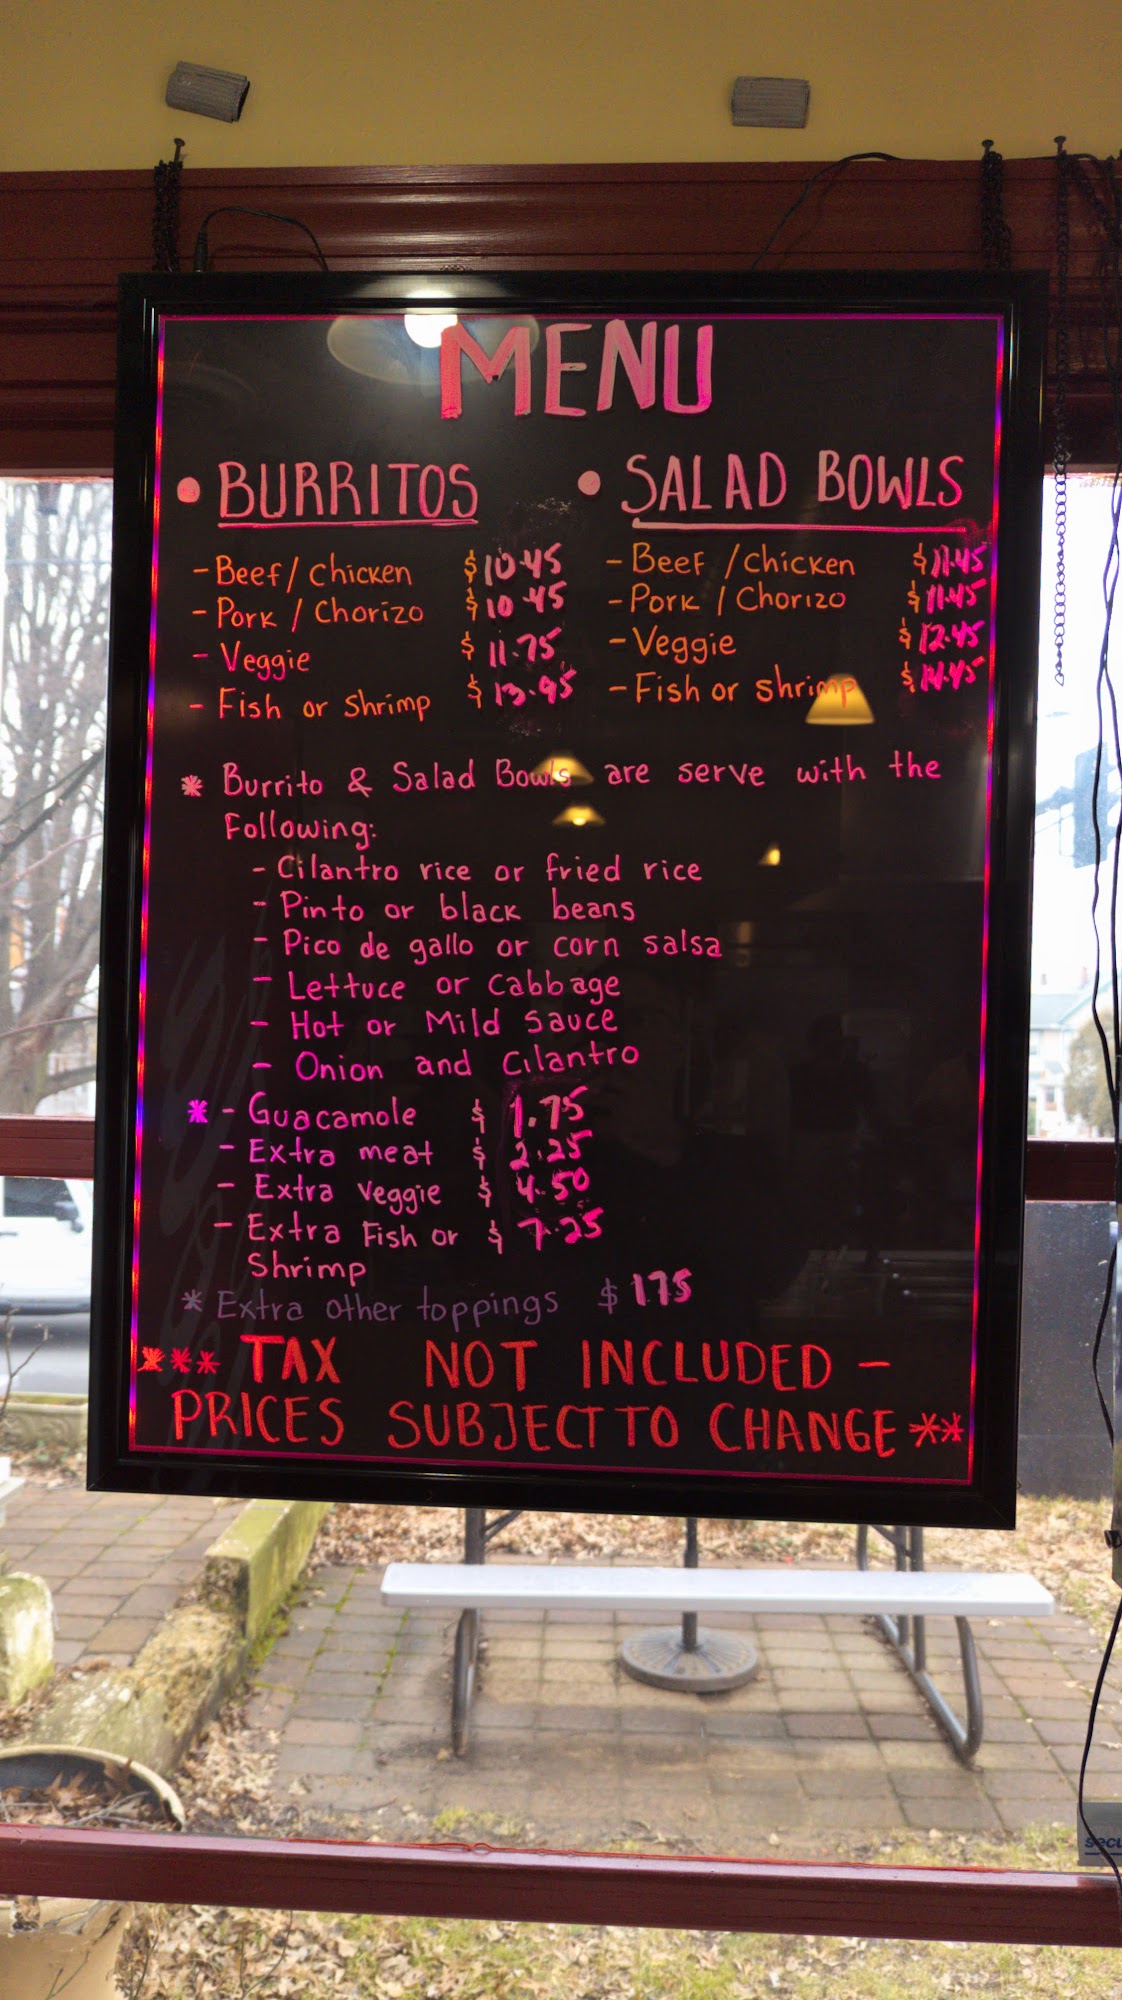 MENU
• BURRITOS
- Beef / Chicken $10.45
- Pork / Chorizo $10.45
- Veggie $11.75
- Fish or Shrimp $13.95
• SALAD BOWLS
- Beef / Chicken $11.45
- Pork / Chorizo $11.45
- Veggie $12.45
- Fish or shrimp $14.45
* Burrito & Salad Bowls are serve with the
Following:
- Cilantro rice or fried rice
- Pinto or black beans
- Pico de gallo or corn salsa
- Lettuce or Cabbage
- Hot or Mild Sauce
- Onion and Cilantro
* - Guacamole $1.75
- Extra meat $2.25
- Extra Veggie $4.50
- Extra Fish or $7.25
Shrimp
* Extra other toppings $1.75
*** TAX NOT INCLUDED -
PRICES SUBJECT TO CHANGE **